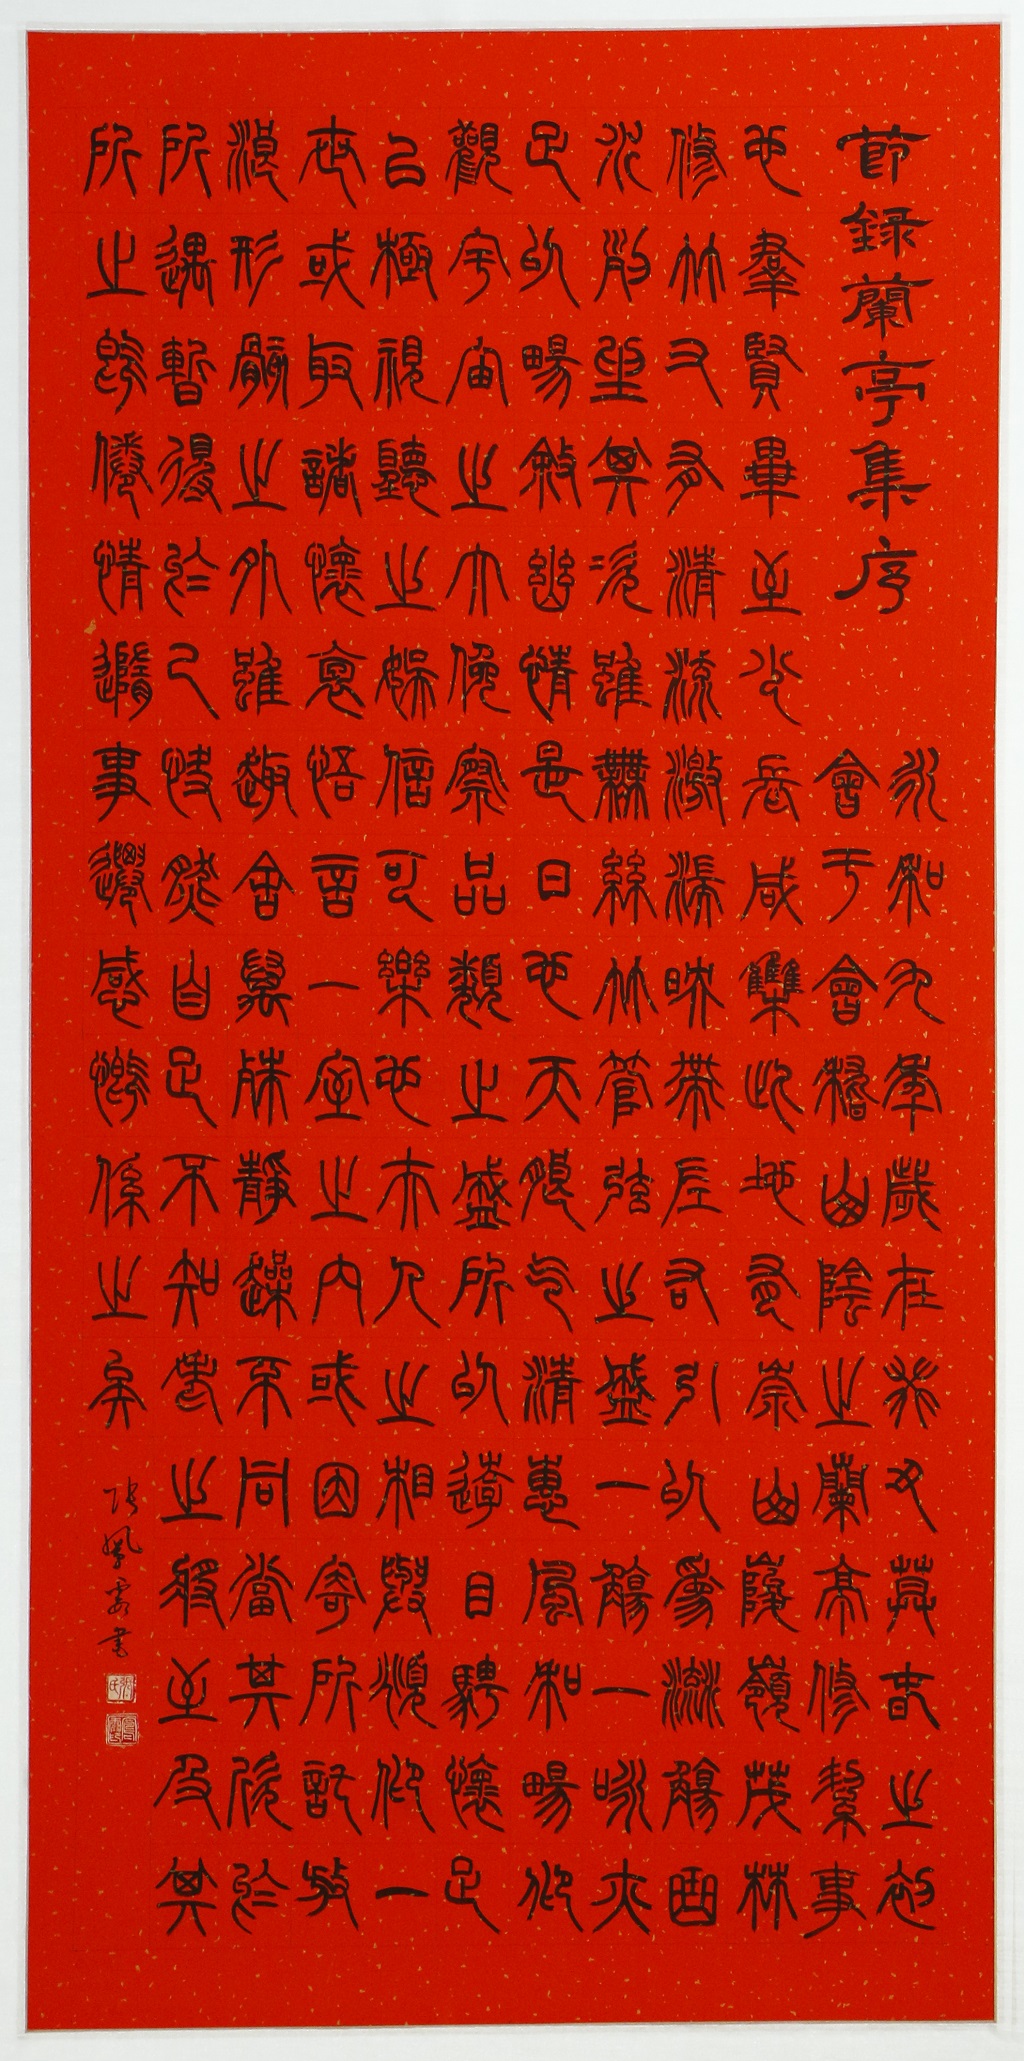 節錄蘭亭集序
永和九年歲在癸丑暮春之初
會于會稽山陰之蘭亭修禊事
也羣賢畢至少長咸集此地有崇山峻嶺茂林
修竹又有清流激湍映帶左右引以爲流觴曲
水列坐其次雖無絲竹管弦之盛一觴一詠亦
足以暢敘幽情是日也天朗气清惠風和暢仰
觀宇宙之大俛察品類之盛所以遊目騁懷足
以極視聽之娛信可樂也夫人之相與俯仰一
世或取諸懷抱悟言一室之內或因寄所託放
浪形骸之外雖趣舍萬殊靜躁不同當其欣於
所遇暫得於己快然自足不知老之將至及其
所之既倦情隨事遷感慨係之矣
張鳳書
張氏